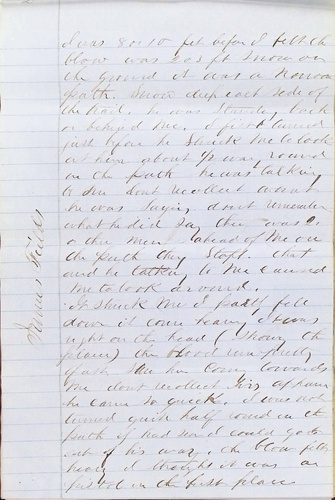 I was 8 or 10 feet before I felt the
blow was 2 or 3 ft Snow on
the ground it was a narrow
path. Snow deep each side of
the trail. he was Standing back
or behind me. I first turned
just before he Struck me to look
at him about 1/2 way round
in the path he was talking
to me dont recollect what
he was Saying dont remember
what he did Say there was 2
other men ahead of me on
the path they Stopt. that
and he talking to me caused
me to look around.
it Struck me I partly fell
down it come heavy it was
right on the head ( Shows the
place) the blood run pretty
Saw him Coming towards
me dont recollect his
he came So quick. I was not
turned quite half round in the
path if had seen I could got
out of his way. the blow felt
heavy I thought it was a
pistol in the first place
James Fields